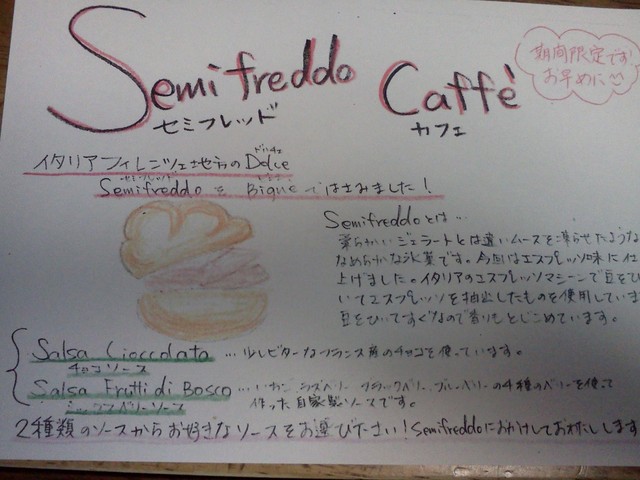 Semifreddo Caffè
セミフレッド カフェ
期間限定です!
お早めに
イタリアフィレンツェ地方のDolce
ドルチェ
Semifreddoを Bigneではさみました!
セミフレッド
Semifreddoとは…
柔らかいジェラートとは違いムースを凍らせたような
なめらかな氷菓です。今回はエスプレッソ味に仕
上げました。イタリアのエスプレッソマシーンで豆をひ
いてエスプレッソを抽出したものを使用しています
豆をひいてすぐなので香りもとじこめています。
Salsa Cioccolata …少しビターなフランス産のチョコを使っています。
チョコソース
Salsa Frutti di Bosco …いちご ラズベリー ブラックベリー、ブルーベリーの4種のベリーを使って
ミックスベリーソース 作った自家製ソースです。
2種類のソースからお好きなソースをお選び下さい!Semifreddoにおかけしてお渡しします